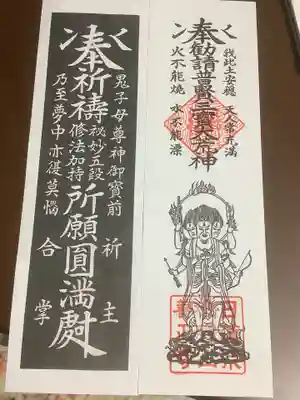 奉勧請普賢三寳大荒神
我此土安穏 天人常充満
火不能焼 水不能漂
奉祈禱
鬼子母尊神御寳前
祕妙五段
修法加持
乃至夢中亦復莫惱
所願圓滿
祈主
合掌